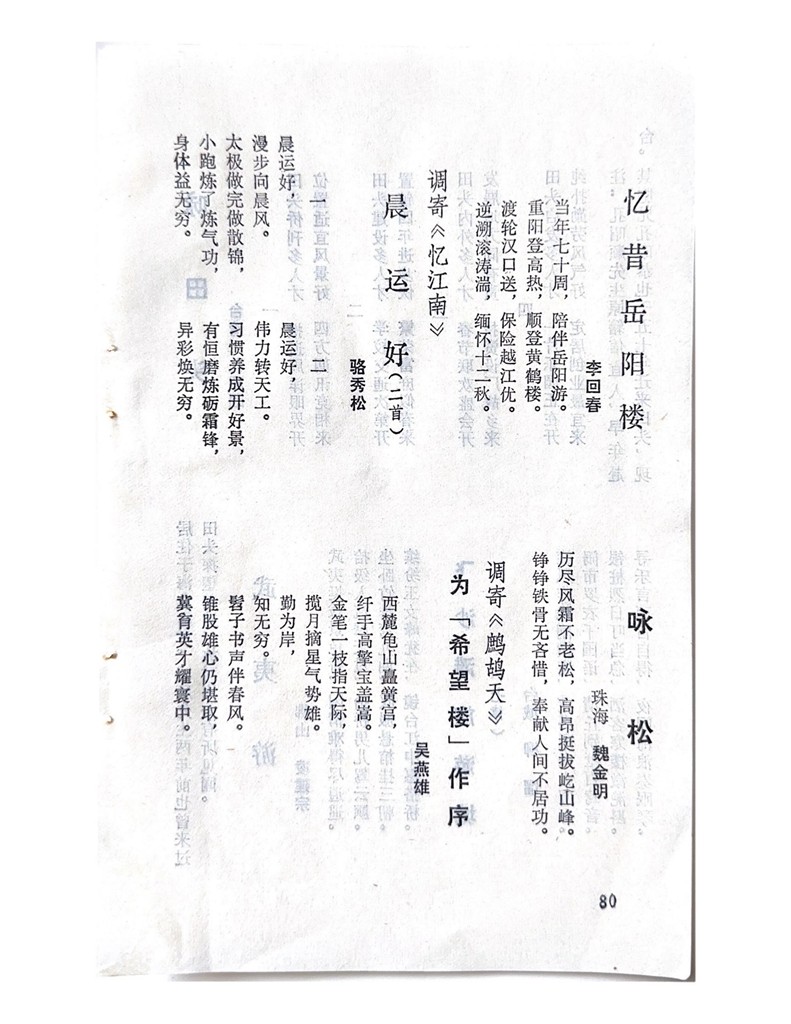 忆昔岳阳楼
李回春
当年七十周，陪伴岳阳游。
重阳登高热，顺登黄鹤楼。
渡轮汉口送，保险越江优。
逆溯滚涛湍，缅怀十二秋。
调寄《忆江南》
晨运好（二首）
骆秀松
一
晨运好，
漫步向晨风。
太极做完做散锦，
小跑炼可炼气功，
身体益无穷。
二
晨运好，
伟力转天工。
习惯养成开好景，
有恒磨炼砺霜锋，
异彩焕无穷。
咏松
珠海 魏金明
历尽风霜不老松，高昂挺拔屹山峰。
铮铮铁骨无吝惜，奉献人间不居功。
调寄《鹧鸪天》
为「希望楼」作序
吴燕雄
西麓龟山矗黉宫，
纤手高擎宝盖嵩。
金笔一枝指天际，
揽月摘星气势雄。
勤为岸，
知无穷。
髫子书声伴春风。
锥股雄心仍堪取，
冀育英才耀寰中。
80